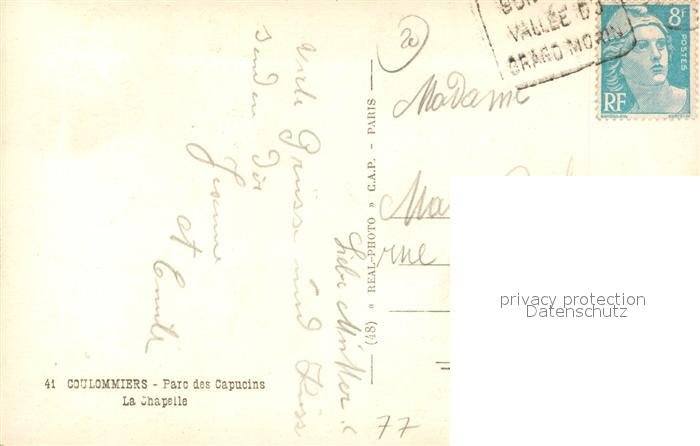 20
VALLÉE DU
GRAND MORIN
8F
POSTES
RF
Madame
rue
Liebe Mutter!
Viele Grüsse und Küsse
senden dir
et
(48) « REAL-PHOTO » C.A.P. - PARIS
41 COULOMMIERS - Parc des Capucins
La Chapelle
77
privacy protection
Datenschutz